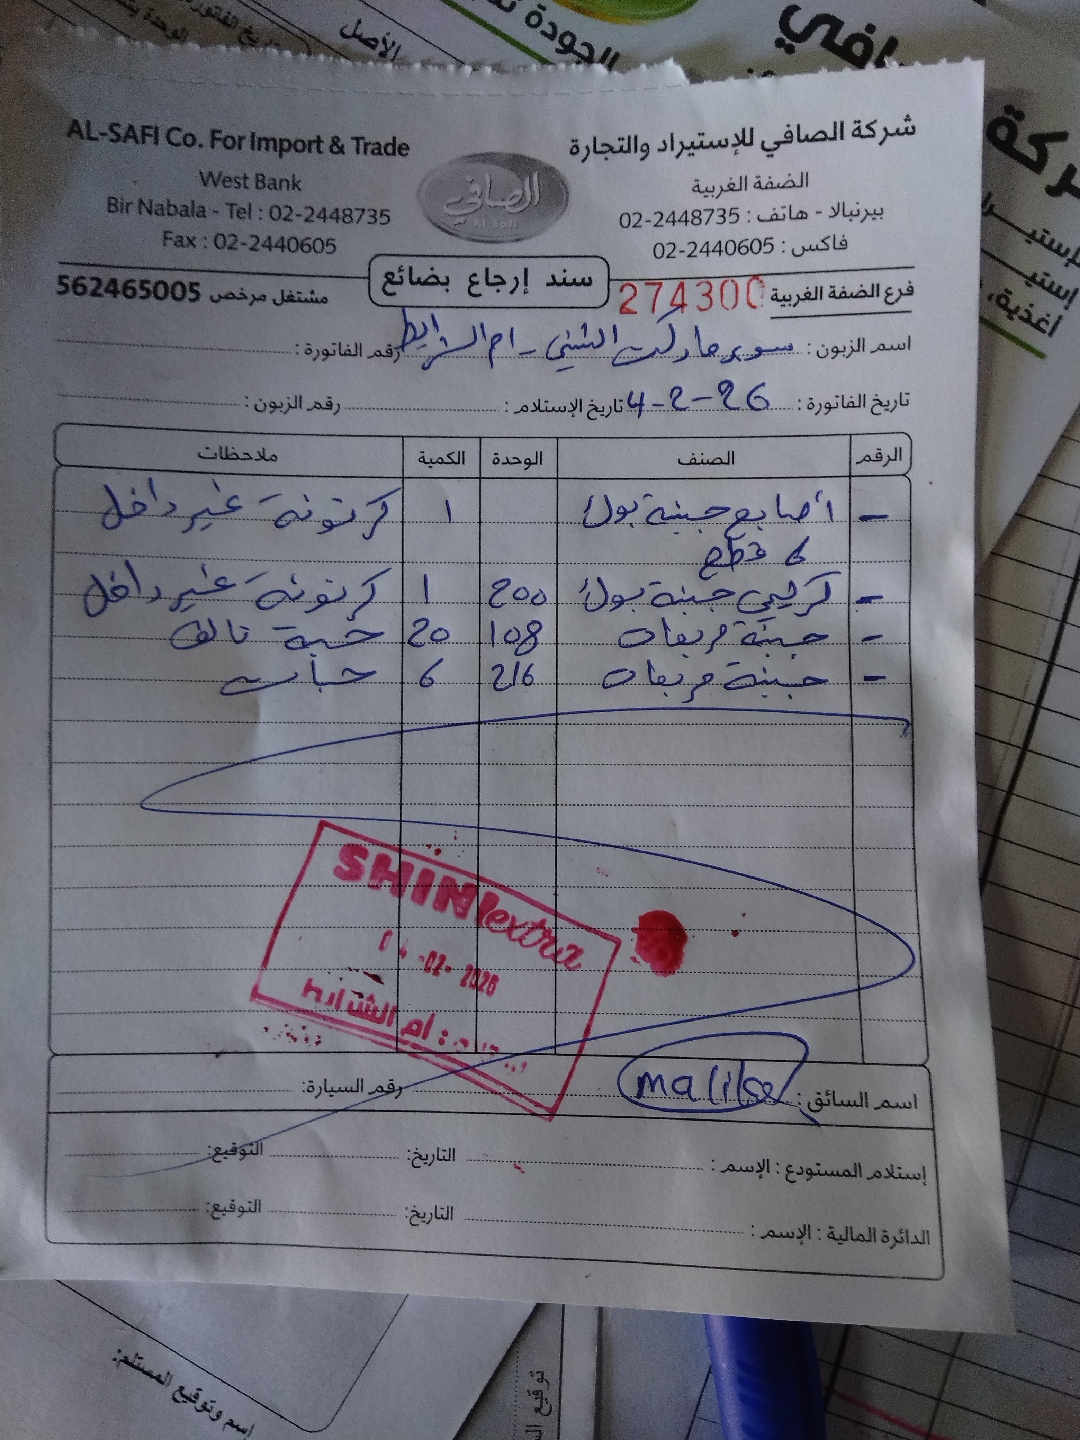 الأصل
الجودة
AL-SAFI Co. For Import & Trade
West Bank
Bir Nabala - Tel : 02-2448735
Fax : 02-2440605
الصافي
شركة الصافي للإستيراد والتجارة
الضفة الغربية
بيرنبالا - هاتف : 02-2448735
فاكس : 02-2440605
سند إرجاع بضائع
فرع الضفة الغربية 274300
مشتغل مرخص 562465005
اسم الزبون : سوبر ماركت الشني - ام الشرايط رقم الفاتورة :
تاريخ الفاتورة : 4-2-26 تاريخ الإستلام : رقم الزبون :
الرقم الصنف الوحدة الكمية ملاحظات
- أصابع جبنة بوك 1 كرتونة غير داخل
6 قطع
- كيري جبنة بوك 200 1 كرتونة غير داخل
- جبنة مربعات 108 20 حبة تالف
- جبنة مربعات 216 6 حبات
SHINI extra
04-02-2026
أم الشرايط
اسم السائق : malik رقم السيارة:
إستلام المستودع : الإسم : التاريخ: التوقيع:
الدائرة المالية : الإسم : التاريخ: التوقيع:
إسم وتوقيع المستلم: